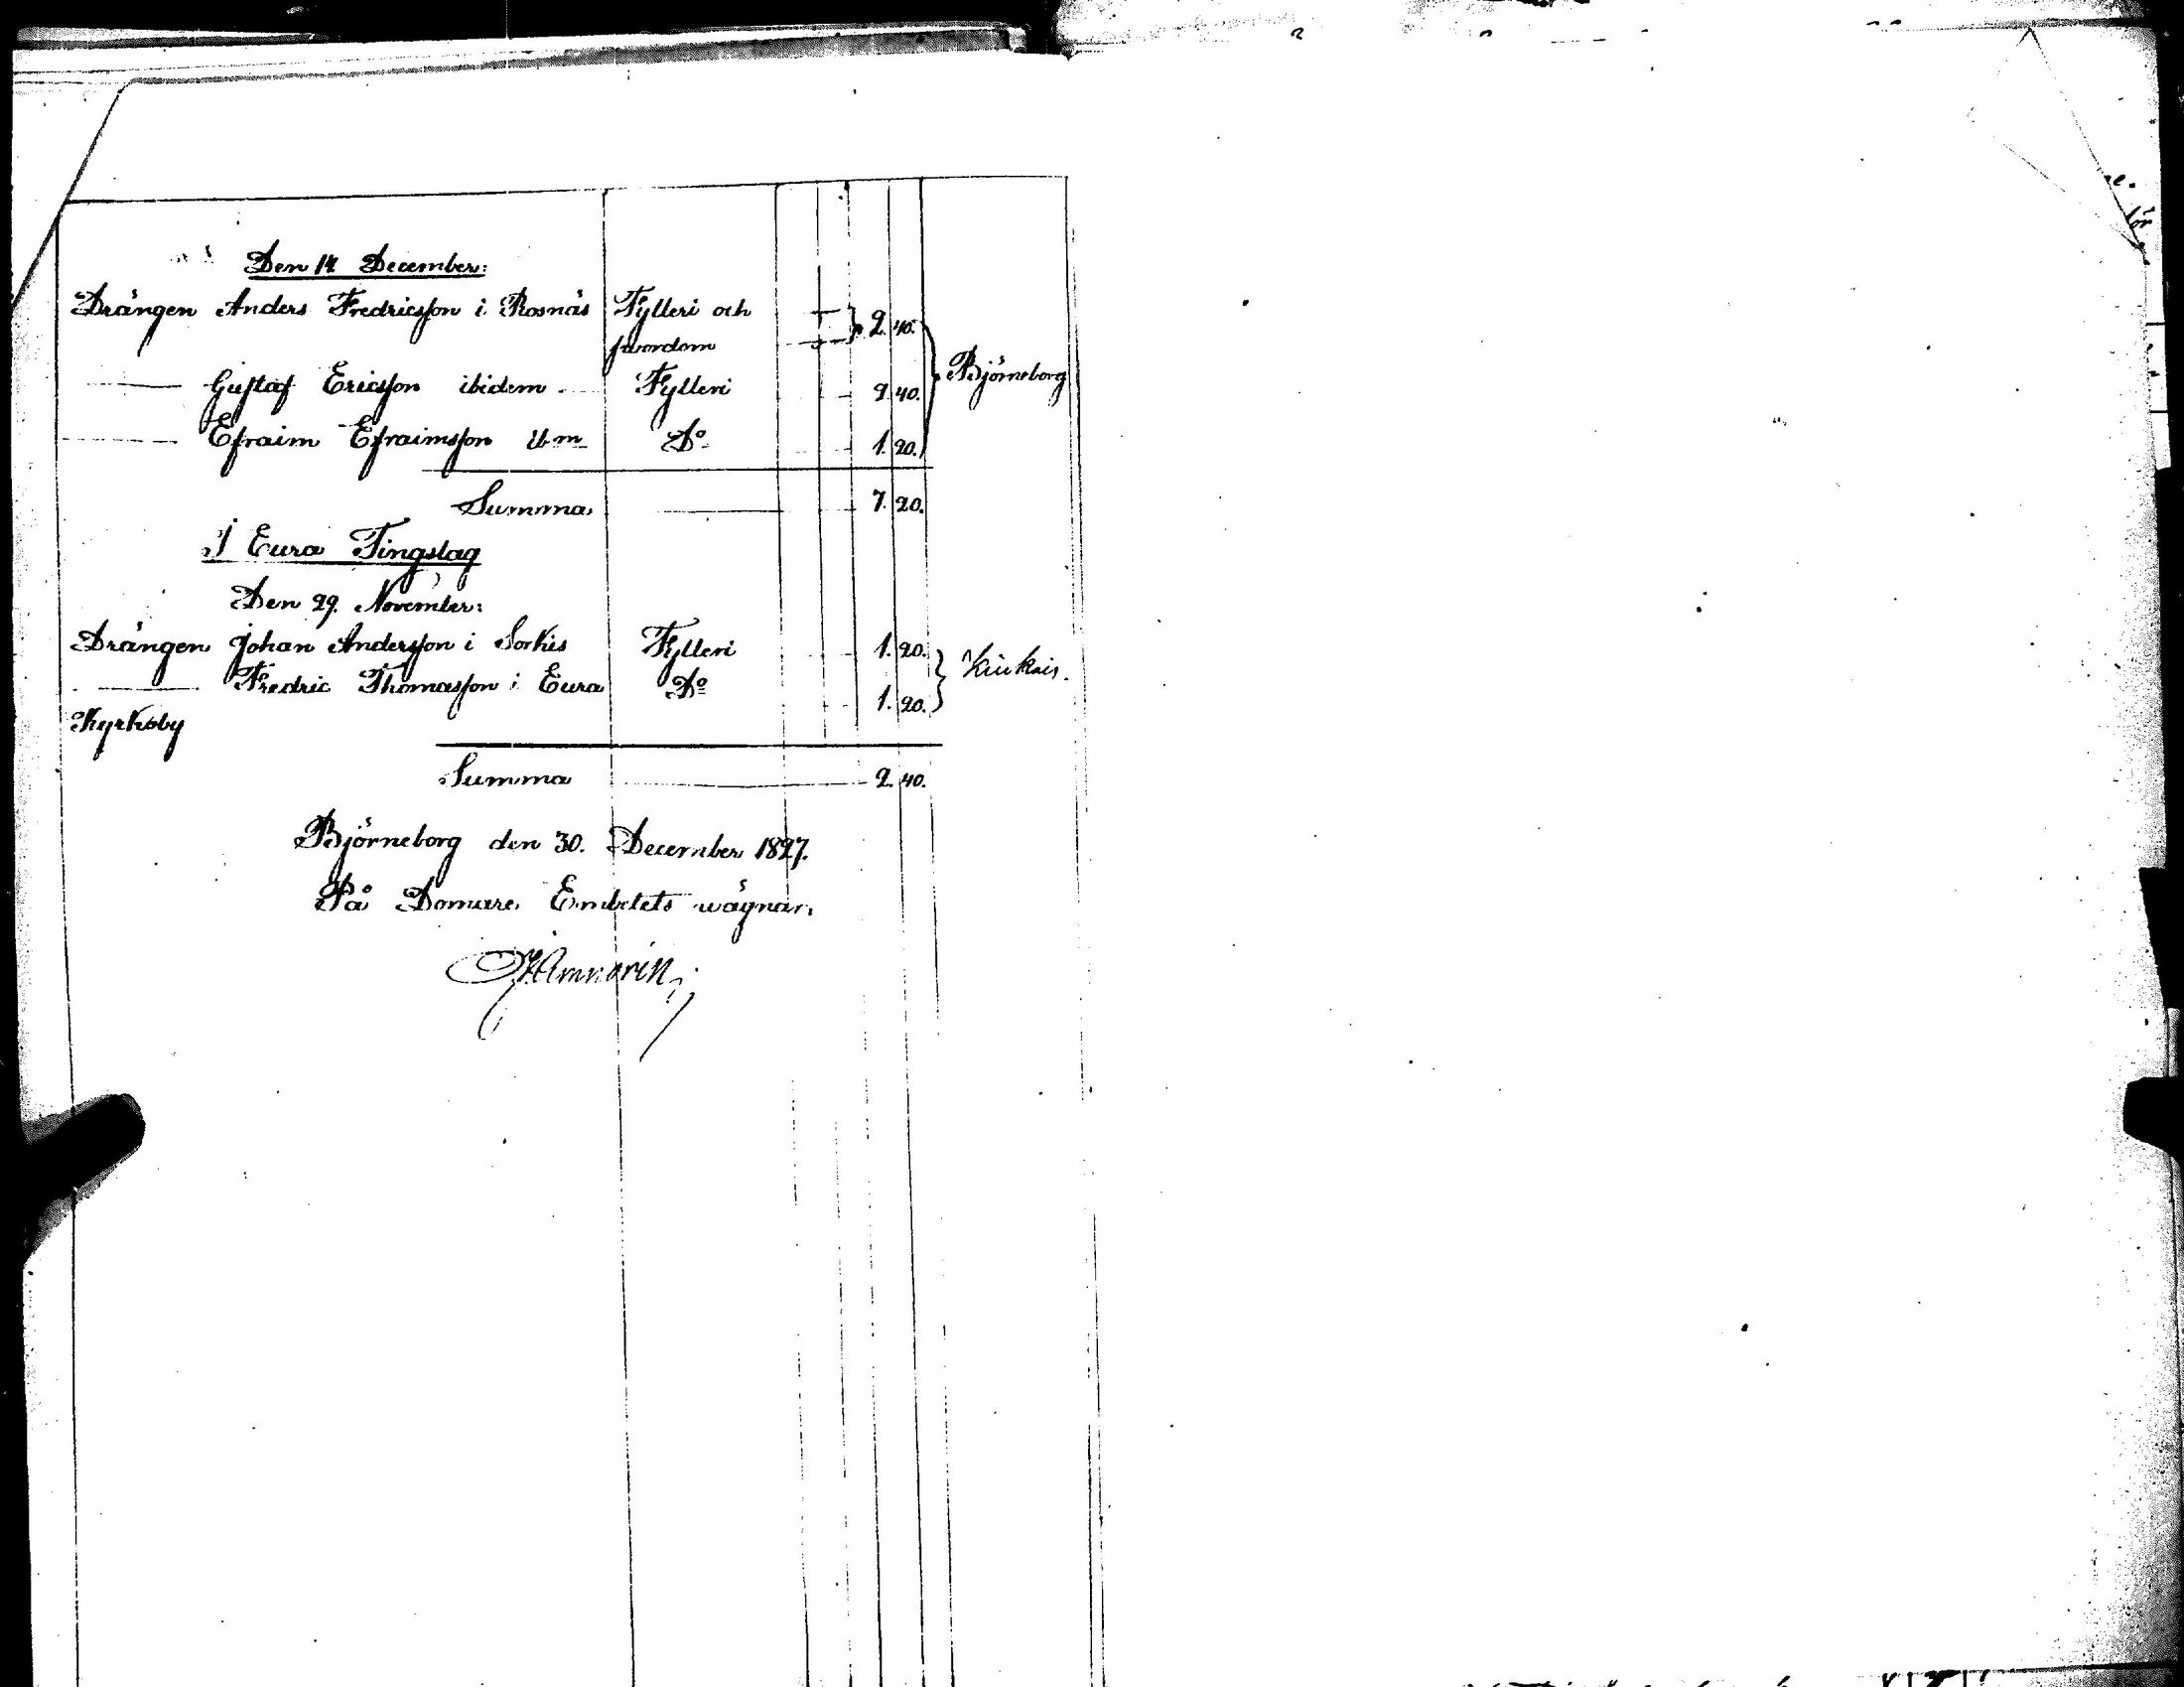 Den 14 December:
Drängen Anders Fredricsson i Rosnäs Fylleri och 2. 40.
svordom
Gustaf Ericsson ibidem Fylleri 2 40. Björneborg
Efraim Efraimsson ibm Do 1. 20.
Summa 7. 20.
I Eura Tingslag
Den 29. November:
Drängen Johan Andersson i Sorkis Fylleri 1. 20.
Fredric Thomasson i Eura Do 1. 20. Kiukais.
Kyrkoby
Summa 2. 40.
Björneborg den 30. December 1827.
På Domare Embetets wägnar.